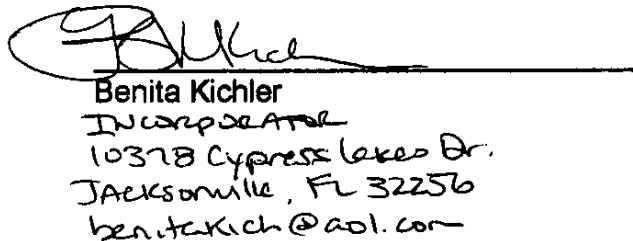 Benita Kichler
INCORPORATOR
10378 Cypress Lakes Dr.
JACKSONVILLE, FL 32256
benitakich@aol.com